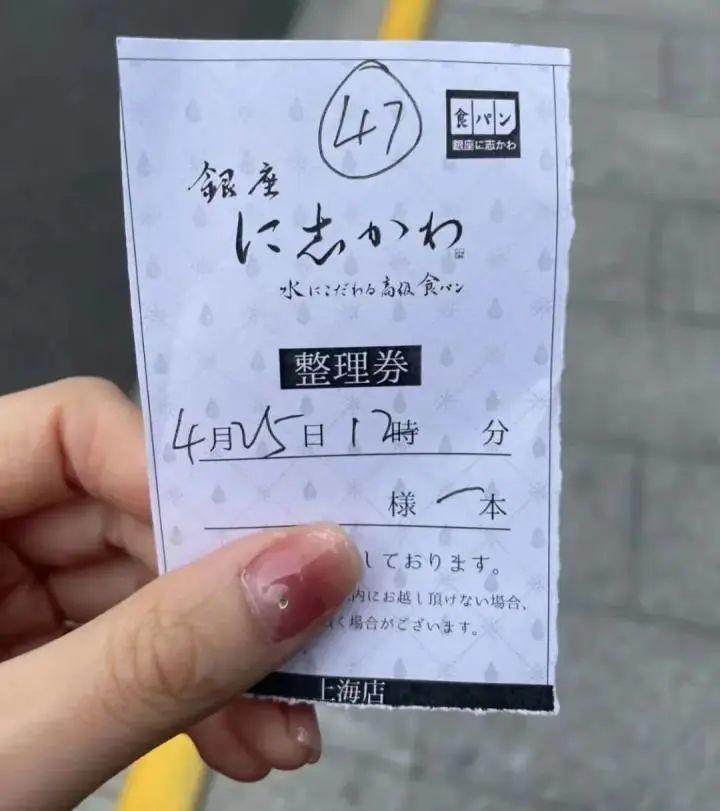 47
食パン
銀座に志かわ
銀座
に志かわ
水にこだわる高級食パン
整理券
4月25日12時 分
様 一本
しております。
内にお越し頂けない場合、
く場合がございます。
上海店